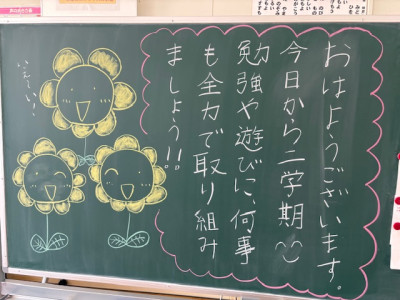 おはようございます。
今日から二学期
勉強や遊びに、何事
も全力で取り組み
ましょう!!
いぇーい!